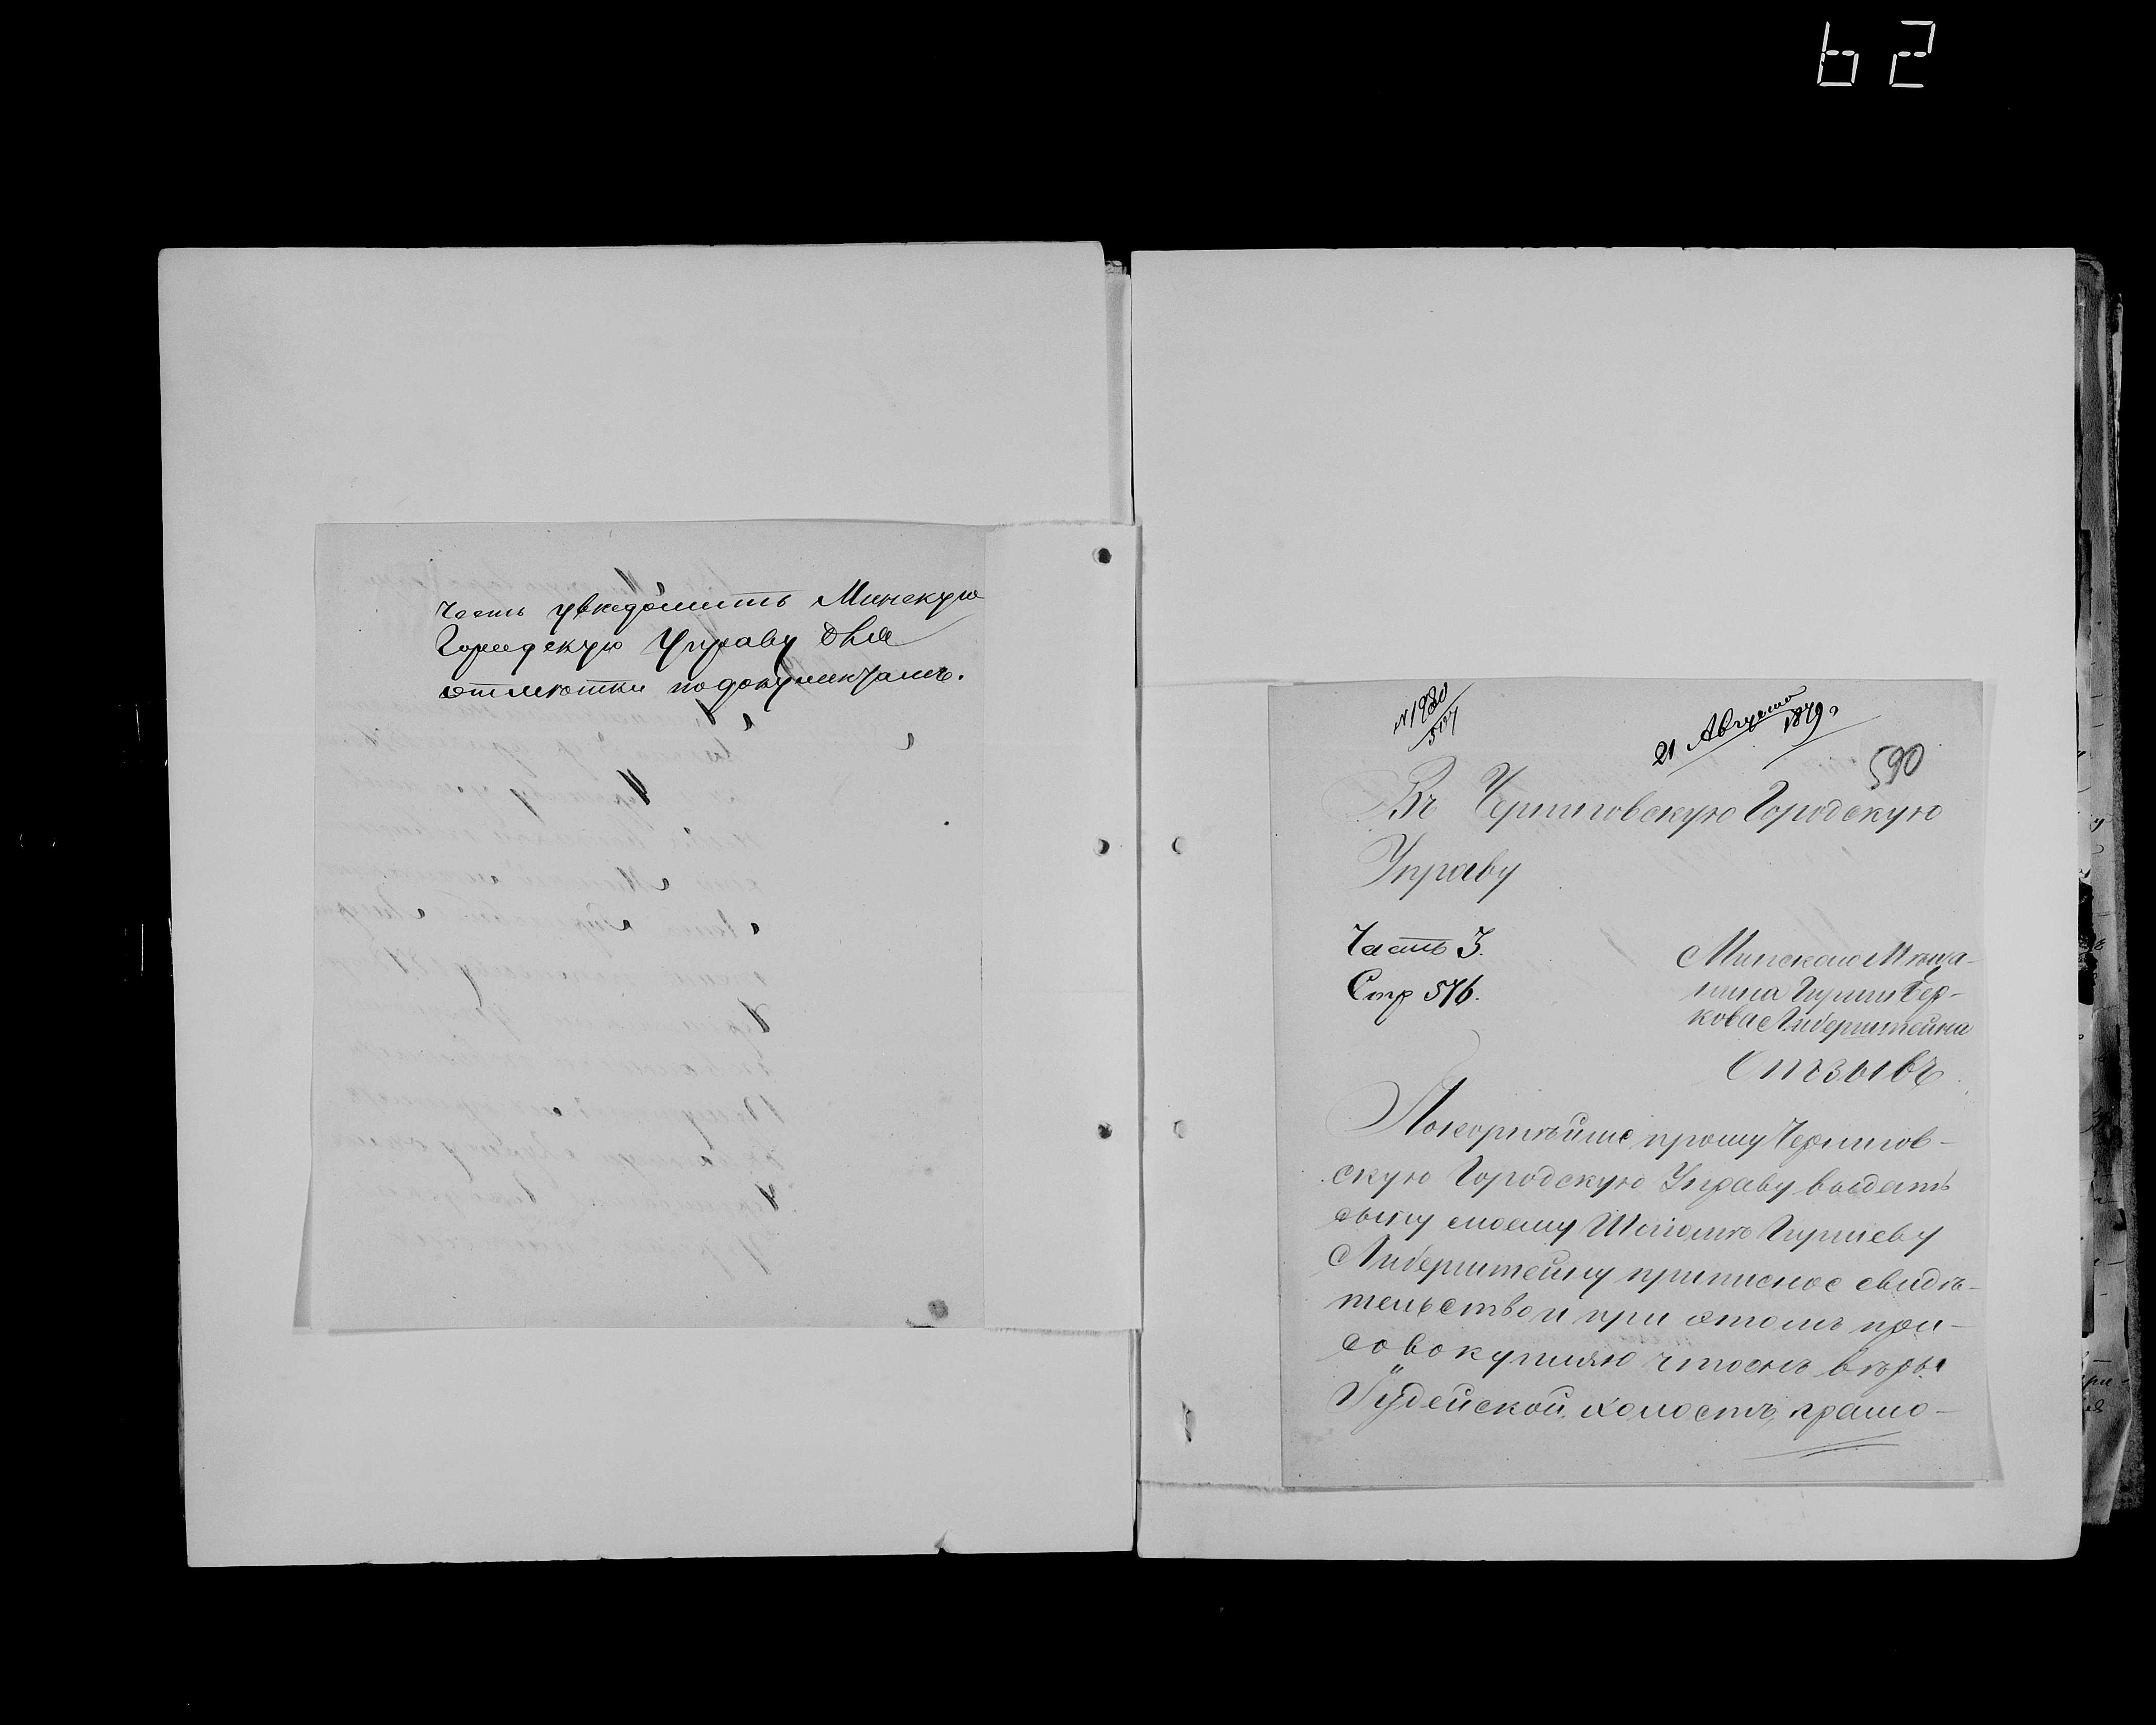 62
часть увѣдомить Минскую
Городскую Управу для
отмѣтки по документамъ.
N 1980
21 Августа 1879 г
590
Въ Черниговскую Городскую
Управу
Часть 3.
Стр 576.
Минскаго Мѣща-
нина Гирши Бер-
кова Либерштейна
Отзывъ
Покорнѣйше прошу Чернигов-
скую Городскую Управу выдать
сыну моему Гиршеву
Либерштейну приписное свидѣ-
тельство и при этомъ при-
совокупляю что онъ вѣры
Іудейской, холостъ, грамо-